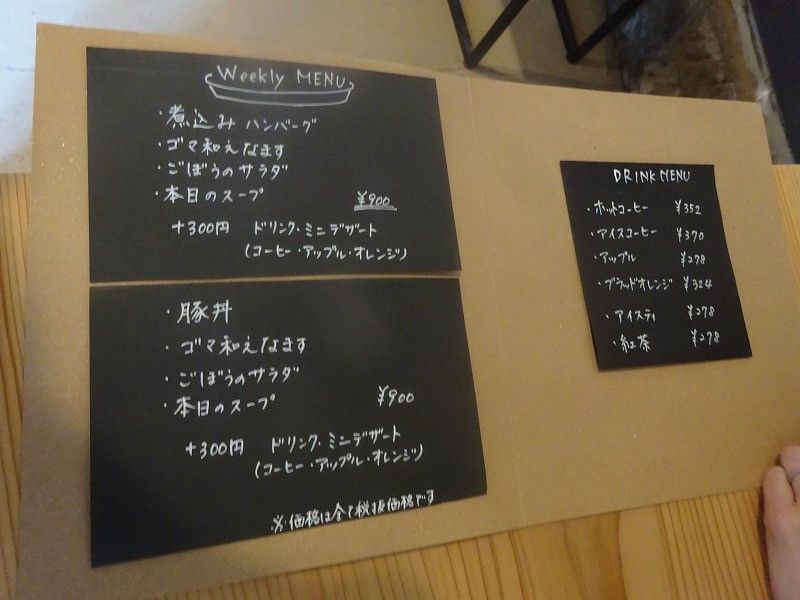 Weekly MENU
・煮込み ハンバーグ
・ゴマ和えなます
・ごぼうのサラダ
・本日のスープ ¥900
+300円 ドリンク・ミニデザート
(コーヒー・アップル・オレンジ)
・豚丼
・ゴマ和えなます
・ごぼうのサラダ
・本日のスープ ¥900
+300円 ドリンク・ミニデザート
(コーヒー・アップル・オレンジ)
※価格は全て税抜価格です
DRINK MENU
・ホットコーヒー ¥352
・アイスコーヒー ¥370
・アップル ¥278
・ブラッドオレンジ ¥324
・アイスティ ¥278
・紅茶 ¥278